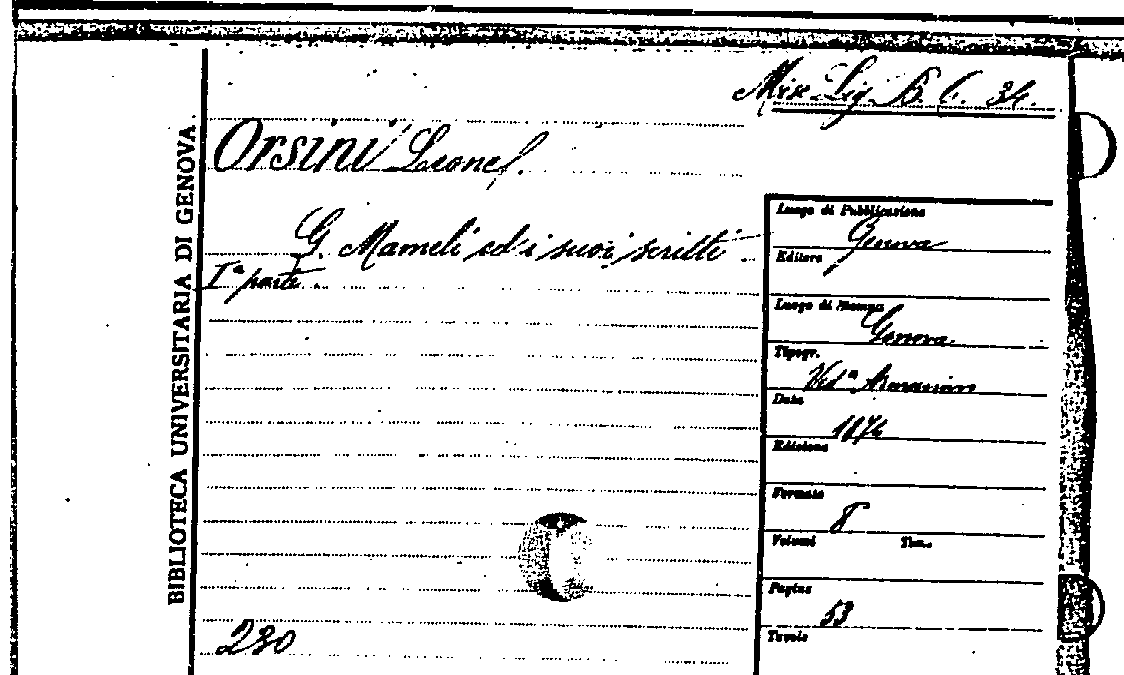 Misc. Lig. B. 6. 34.
Orsini Leonel.
G. Mameli ed i suoi scritti.
Iª parte.
230
BIBLIOTECA UNIVERSITARIA DI GENOVA.
Luogo di Pubblicazione
Genova
Editore
Luogo di Stampa
Genova
Tipogr.
Vedª
Data
1876
Edizione
Formato
8
Volumi
Pagine
53
Tavole